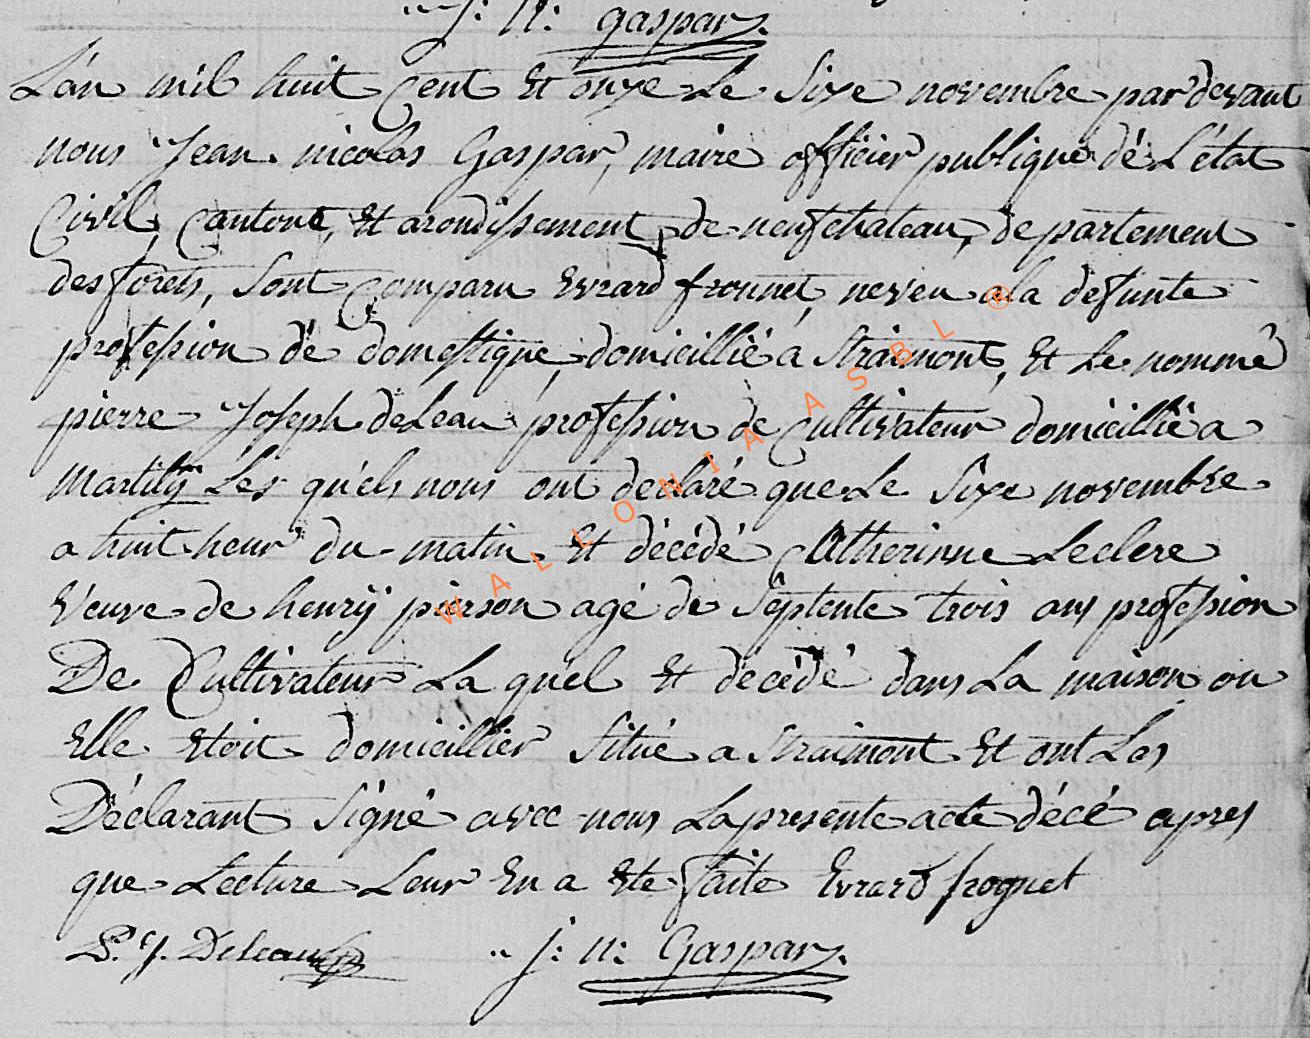 J: N: gaspar.
L'an mil huit Cent Et onze Le Sixe novembre par devant
nous Jean nicolas Gaspar, maire officier publique dé L'état
Civil, Cantont, Et arondissement de neufchateau, departement
des forets, Sont Comparu Evrard fronnet, neveu a la defunte
profession dé domestique, domicillié a Straimont, Et Le nommé
pierre Joseph deleau profession de Cultivateur domicillié a
Martilÿ Lés quéls nous ont declaré que Le Sixe novembre
a huit heur du matin Et décédé Catherinne Leclere
veuve de henrÿ pierson agé de Séptente trois ans profession
De Cultivateur La quél Et décédé dans La maison ou
Elle Etoit domicillier Situé a Straimont Et ont Les
Déclarant Signé avec nous La presente acte décé apres
que Lecture Leur En a Ete faite Evrard frognet
P. J. Deleau J: N: Gaspar.
WALLONIA ASBL ®